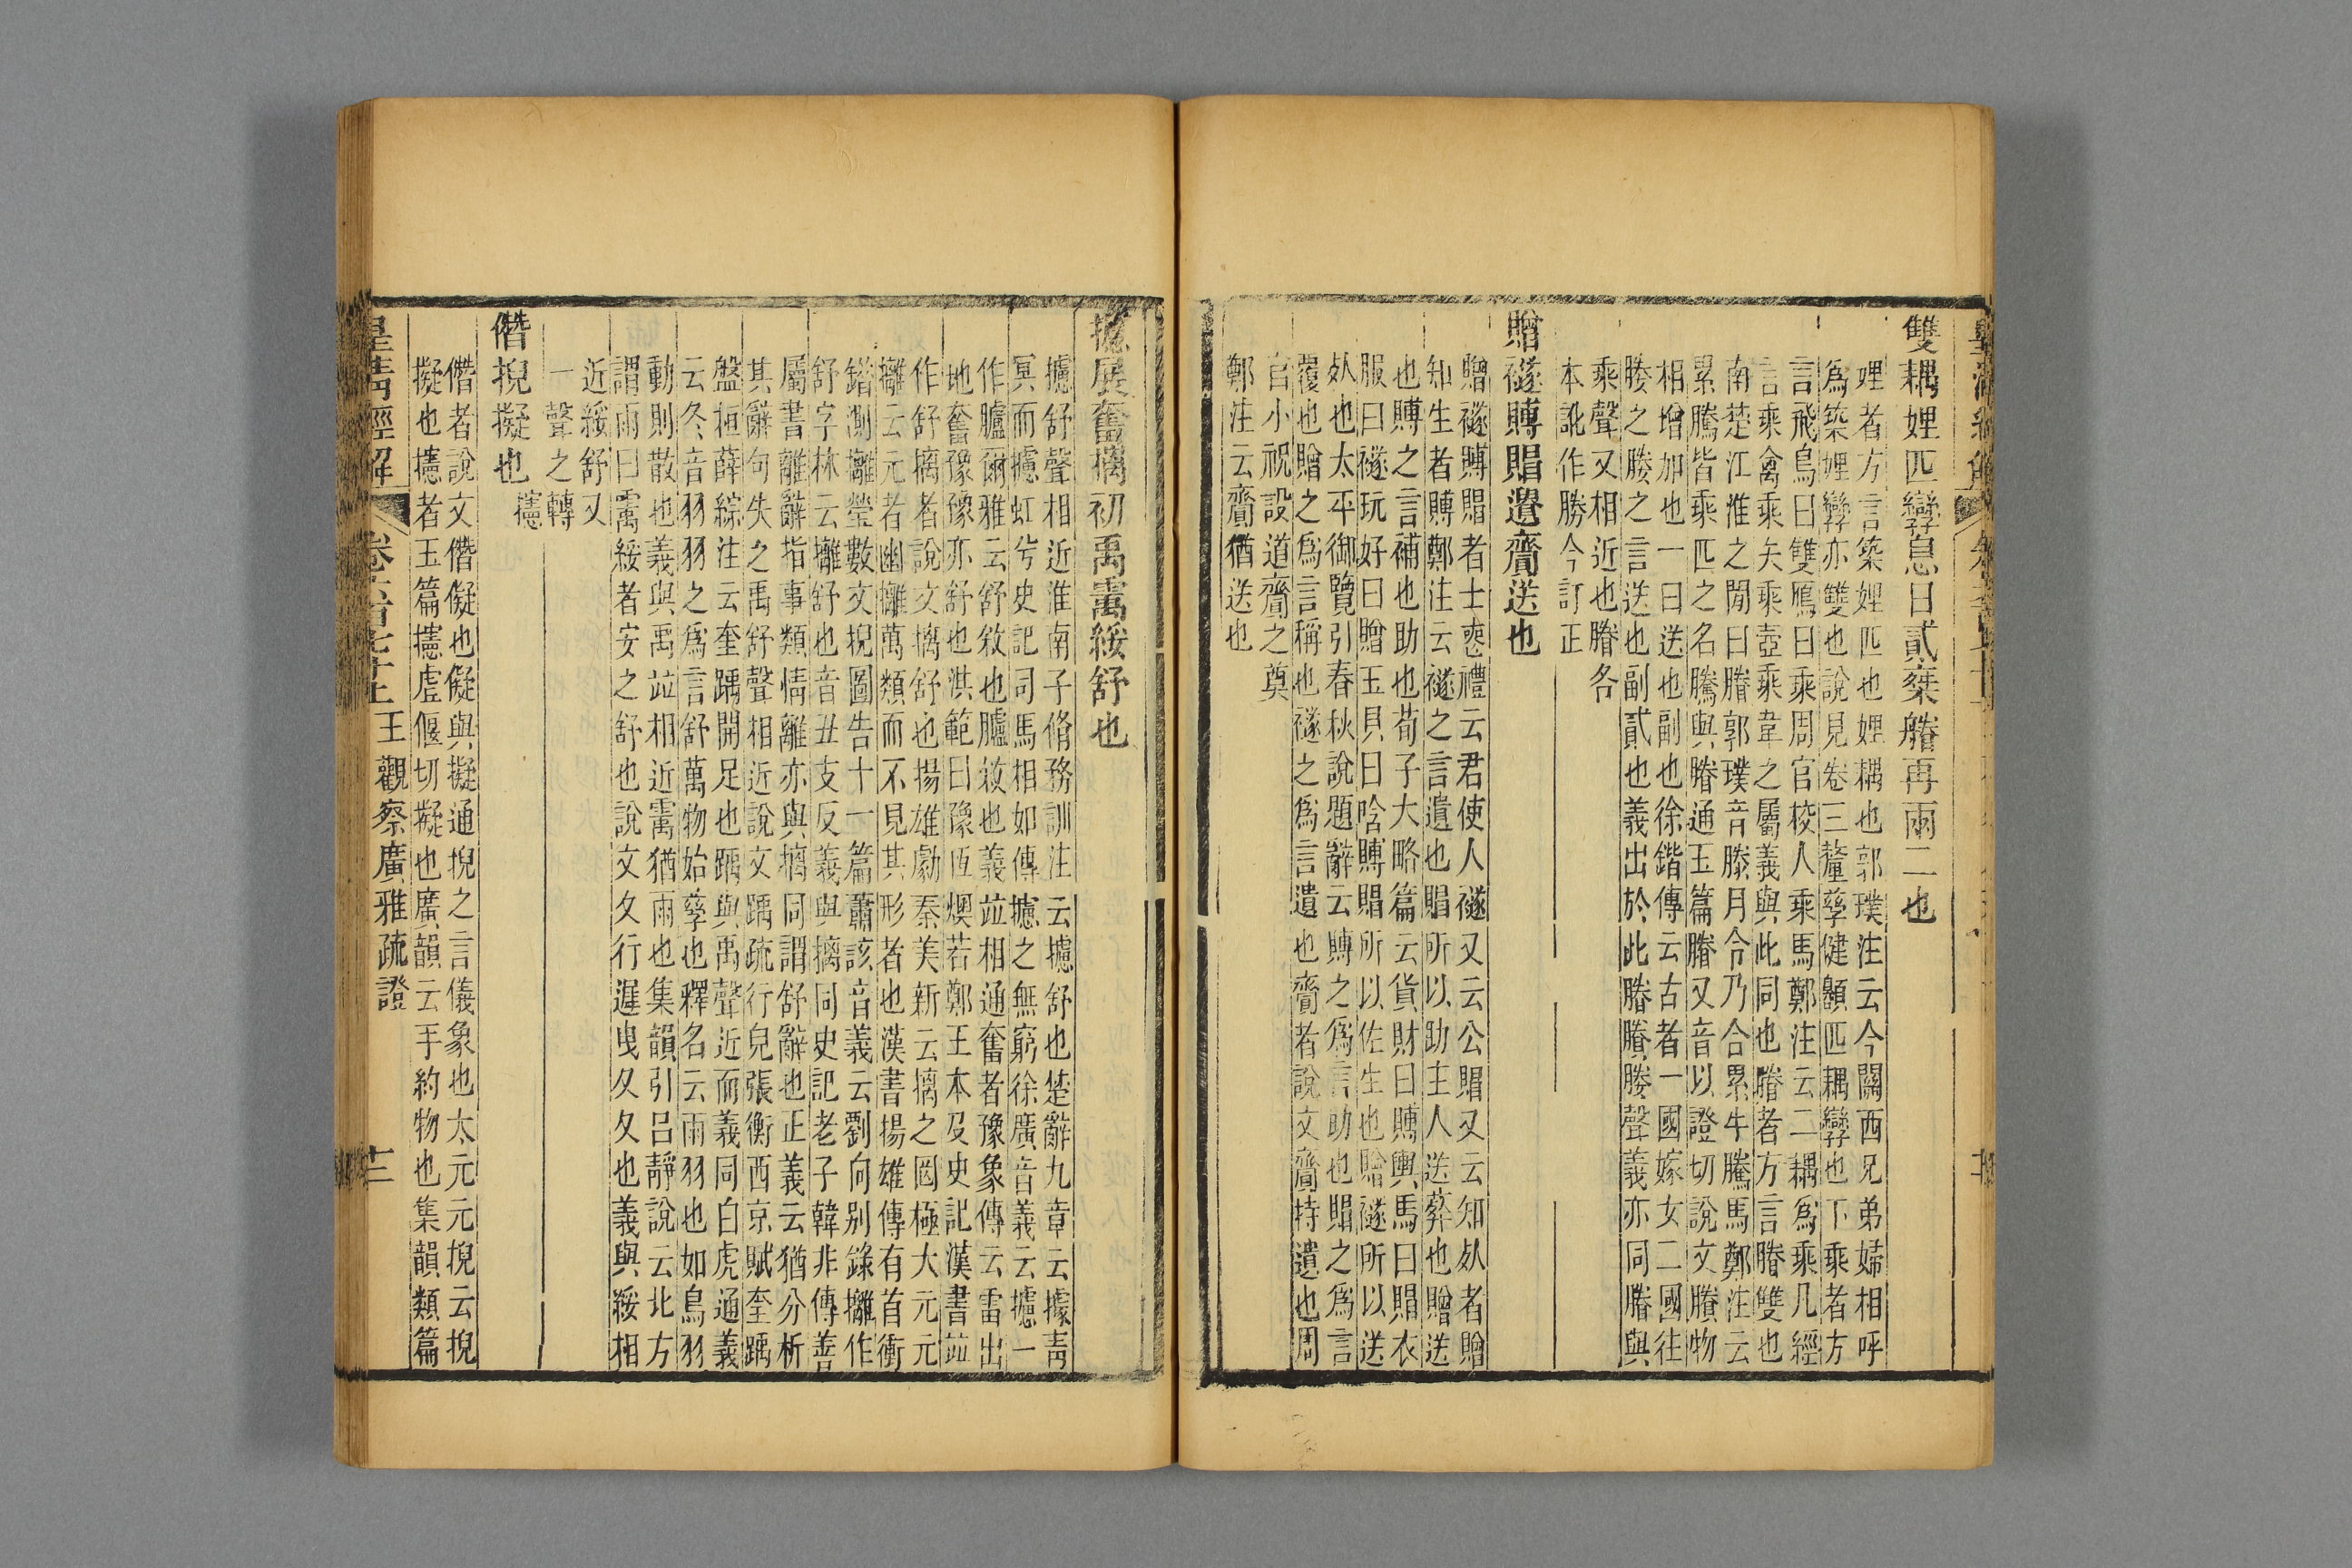 雙耦娌匹孿息日貳椉艠再兩二也
娌者方言築娌匹也娌耦也郭璞注云今關西兄弟婦相呼
爲築娌孿亦雙也說見卷三釐孳健𩕾匹耦孿也下乘者方
言飛鳥曰雙鴈曰乘周官校人乘馬鄭注云二耦爲乘凡經
言乘禽乘矢乘壺乘韋之屬義與此同也䞉者方言䞉雙也
南楚江淮之閒曰䞉郭璞音滕月令乃合累牛騰馬鄭注云
累騰皆乘匹之名騰與䞉通玉篇䞉又音以證切說文賸物
相增加也一曰送也副也徐鍇傳云古者一國嫁女二國往
媵之媵之言送也副貳也義出於此䞉賸媵聲義亦同䞉與
乘聲又相近也䞉各
本訛作勝今訂正
贈襚賻賵遺齎送也
贈襚賻賵者士喪禮云君使人襚又云公賵又云知死者贈
知生者賻鄭注云襚之言遺也賵所以助主人送葬也贈送
也賻之言補也助也荀子大略篇云貨財曰賻輿馬曰賵衣
服曰襚玩好曰贈玉貝曰唅賻賵所以佐生也贈襚所以送
死也太平御覽引春秋說題辭云賻之爲言助也賵之爲言
覆也贈之爲言稱也襚之爲言遺也齎者說文齎持遺也周
官小祝設道齎之奠
鄭注云齎猶送也
攄展奮摛初禹䨞綏舒也
攄舒聲相近淮南子脩務訓注云攄舒也楚辭九章云據靑
冥而攄虹兮史記司馬相如傳攄之無窮徐廣音義云攄一
作臚爾雅云舒敘也臚敘也義竝相通奮者豫象傳云雷出
地奮豫豫亦舒也洪範曰豫恆燠若鄭王本及史記漢書竝
作舒摛者說文摛舒也揚雄劇秦美新云摛之罔極大元元
攡云元者幽攡萬類而不見其形者也漢書揚雄傳有首衝
錯測攡瑩數文掜圖告十一篇蕭該音義云劉向別錄攡作
舒字林云攡舒也音丑支反義與摛同史記老子韓非傳善
屬書離辭指事類情離亦與摛同謂舒辭也正義云猶分析
其辭句失之禹舒聲相近說文踽疏行皃張衡西京賦奎踽
盤桓薛綜注云奎踽開足也踽與禹聲近而義同白虎通義
云冬音羽羽之爲言舒萬物始孳也釋名云雨羽也如鳥羽
動則散也義與禹竝相近䨞猶雨也集韻引呂靜說云北方
謂雨曰䨞綏者安之舒也說文夊行遟曳夊夊也義與綏相
近綏舒又
一聲之轉
僭掜擬也攇
僭者說文僭儗也儗與擬通掜之言儀象也太元元掜云掜
擬也攇者玉篇攇虛偃切擬也廣韻云手約物也集韻類篇
皇淸經解
卷六百七十上
王觀察廣雅疏證
十二